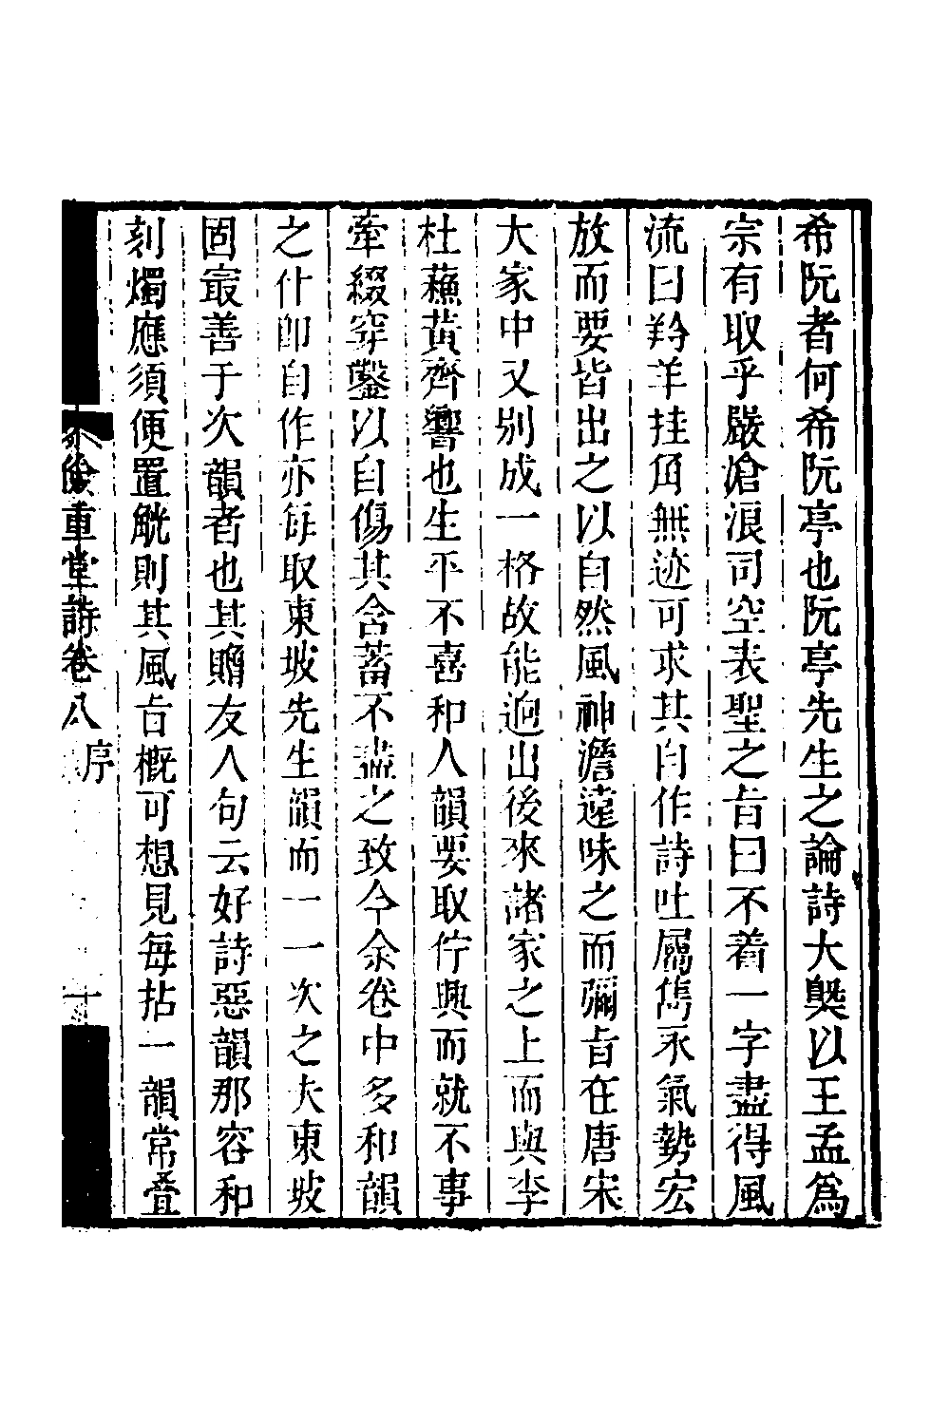 希阮者何希阮亭也阮亭先生之論詩大槩以王孟為
宗有取乎嚴滄浪司空表聖之旨曰不着一字盡得風
流曰羚羊挂角無迹可求其自作詩吐屬雋永氣勢宏
放而要皆出之以自然風神澹遠味之而彌旨在唐宋
大家中又別成一格故能逈出後來諸家之上而與李
杜蘇黃齊響也生平不喜和人韻要取佇興而就不事
牽綴穿鑿以自傷其含蓄不盡之致今余卷中多和韻
之什卽自作亦每取東坡先生韻而一一次之夫東坡
固寂善于次韻者也其贈友人句云好詩惡韻那容和
刻燭應須便置觥則其風旨概可想見每拈一韻常疊
重堂詩卷八
序
十